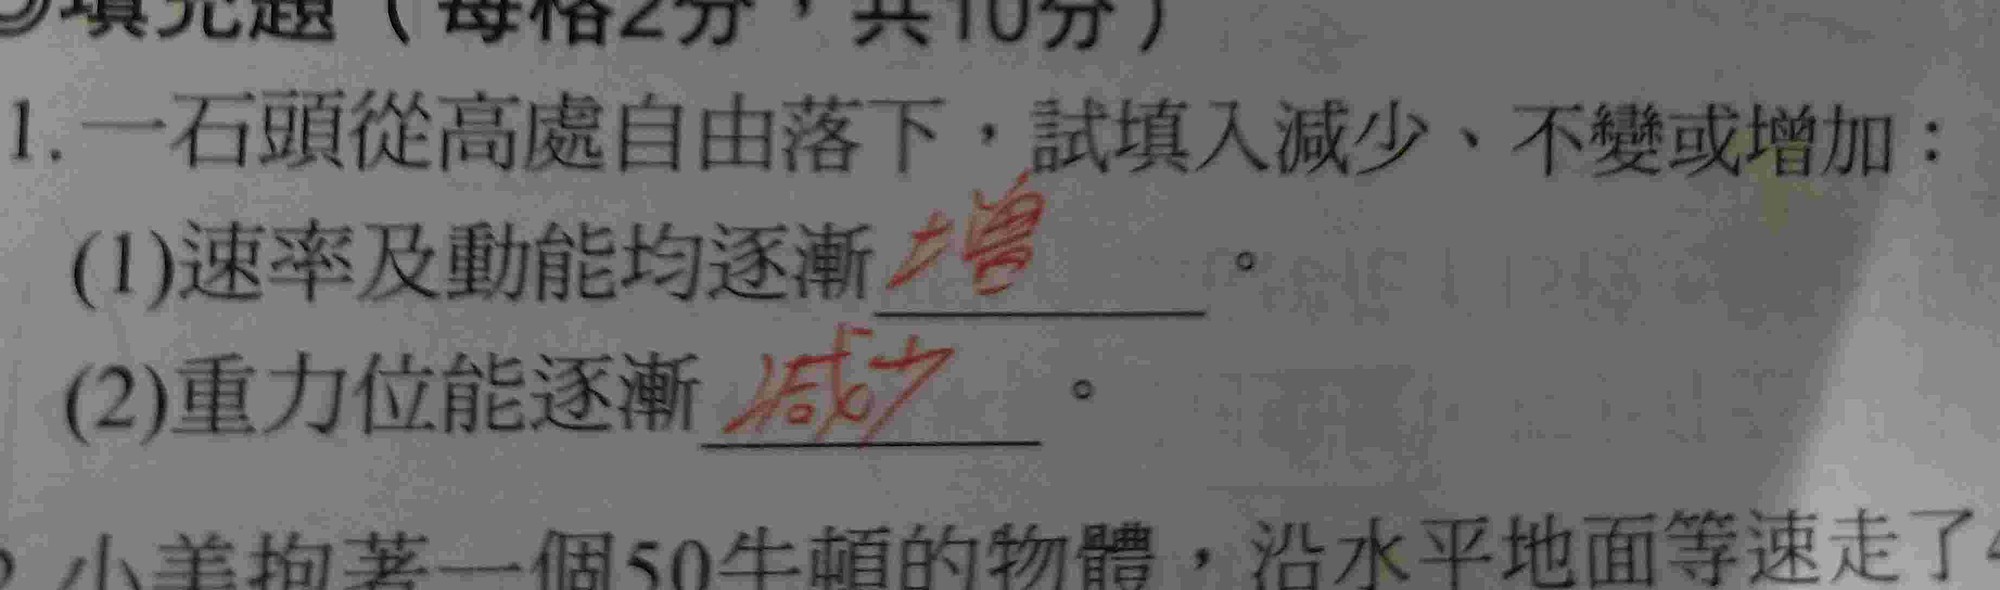 填充題（每格2分，共10分）
1. 一石頭從高處自由落下，試填入減少、不變或增加：
(1)速率及動能均逐漸增。
(2)重力位能逐漸減少。
2. 小美抱著一個50牛頓的物體，沿水平地面等速走了4